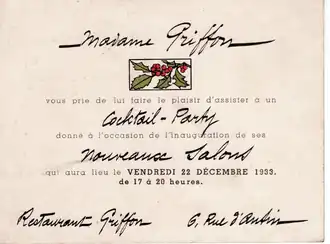 Madame Griffon
vous prie de lui faire le plaisir d'assister à un
Cocktail-Party
donné à l'occasion de l'inauguration de ses
Nouveaux Salons
qui aura lieu le VENDREDI 22 DÉCEMBRE 1933.
de 17 à 20 heures.
Restaurant Griffon 6, Rue d'Antin